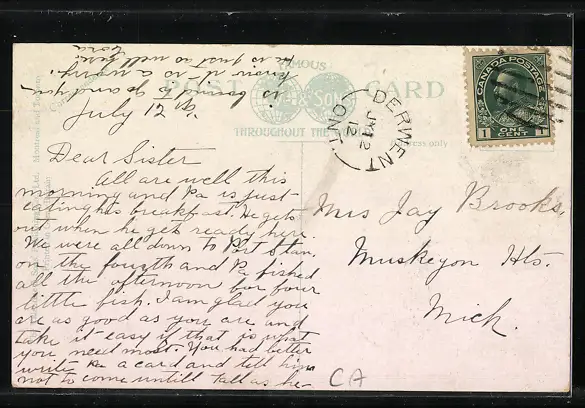 FAMOUS
POST CARD
& Sons
THROUGHOUT THE
Address only
CANADA POSTAGE
1 ONE CENT 1
DERWENT
JY 12
12
ONT.
July 12
Dear Sister
All are well this
morning and Pa is just
eating his breakfast. He gets
out when he gets ready here.
We were all down to Port Stan.
on the fourth and Pa fished
all the afternoon for four
little fish. I am glad you
are as good as you are and
take it easy if that is what
you need most. You had better
write Pa a card and tell him
not to come untill fall as he
is bound to go and you
know it is so a worry.
He is just so well here
Cora
Mrs Jay Brooks,
Muskegon Hts.
Mich.
CA